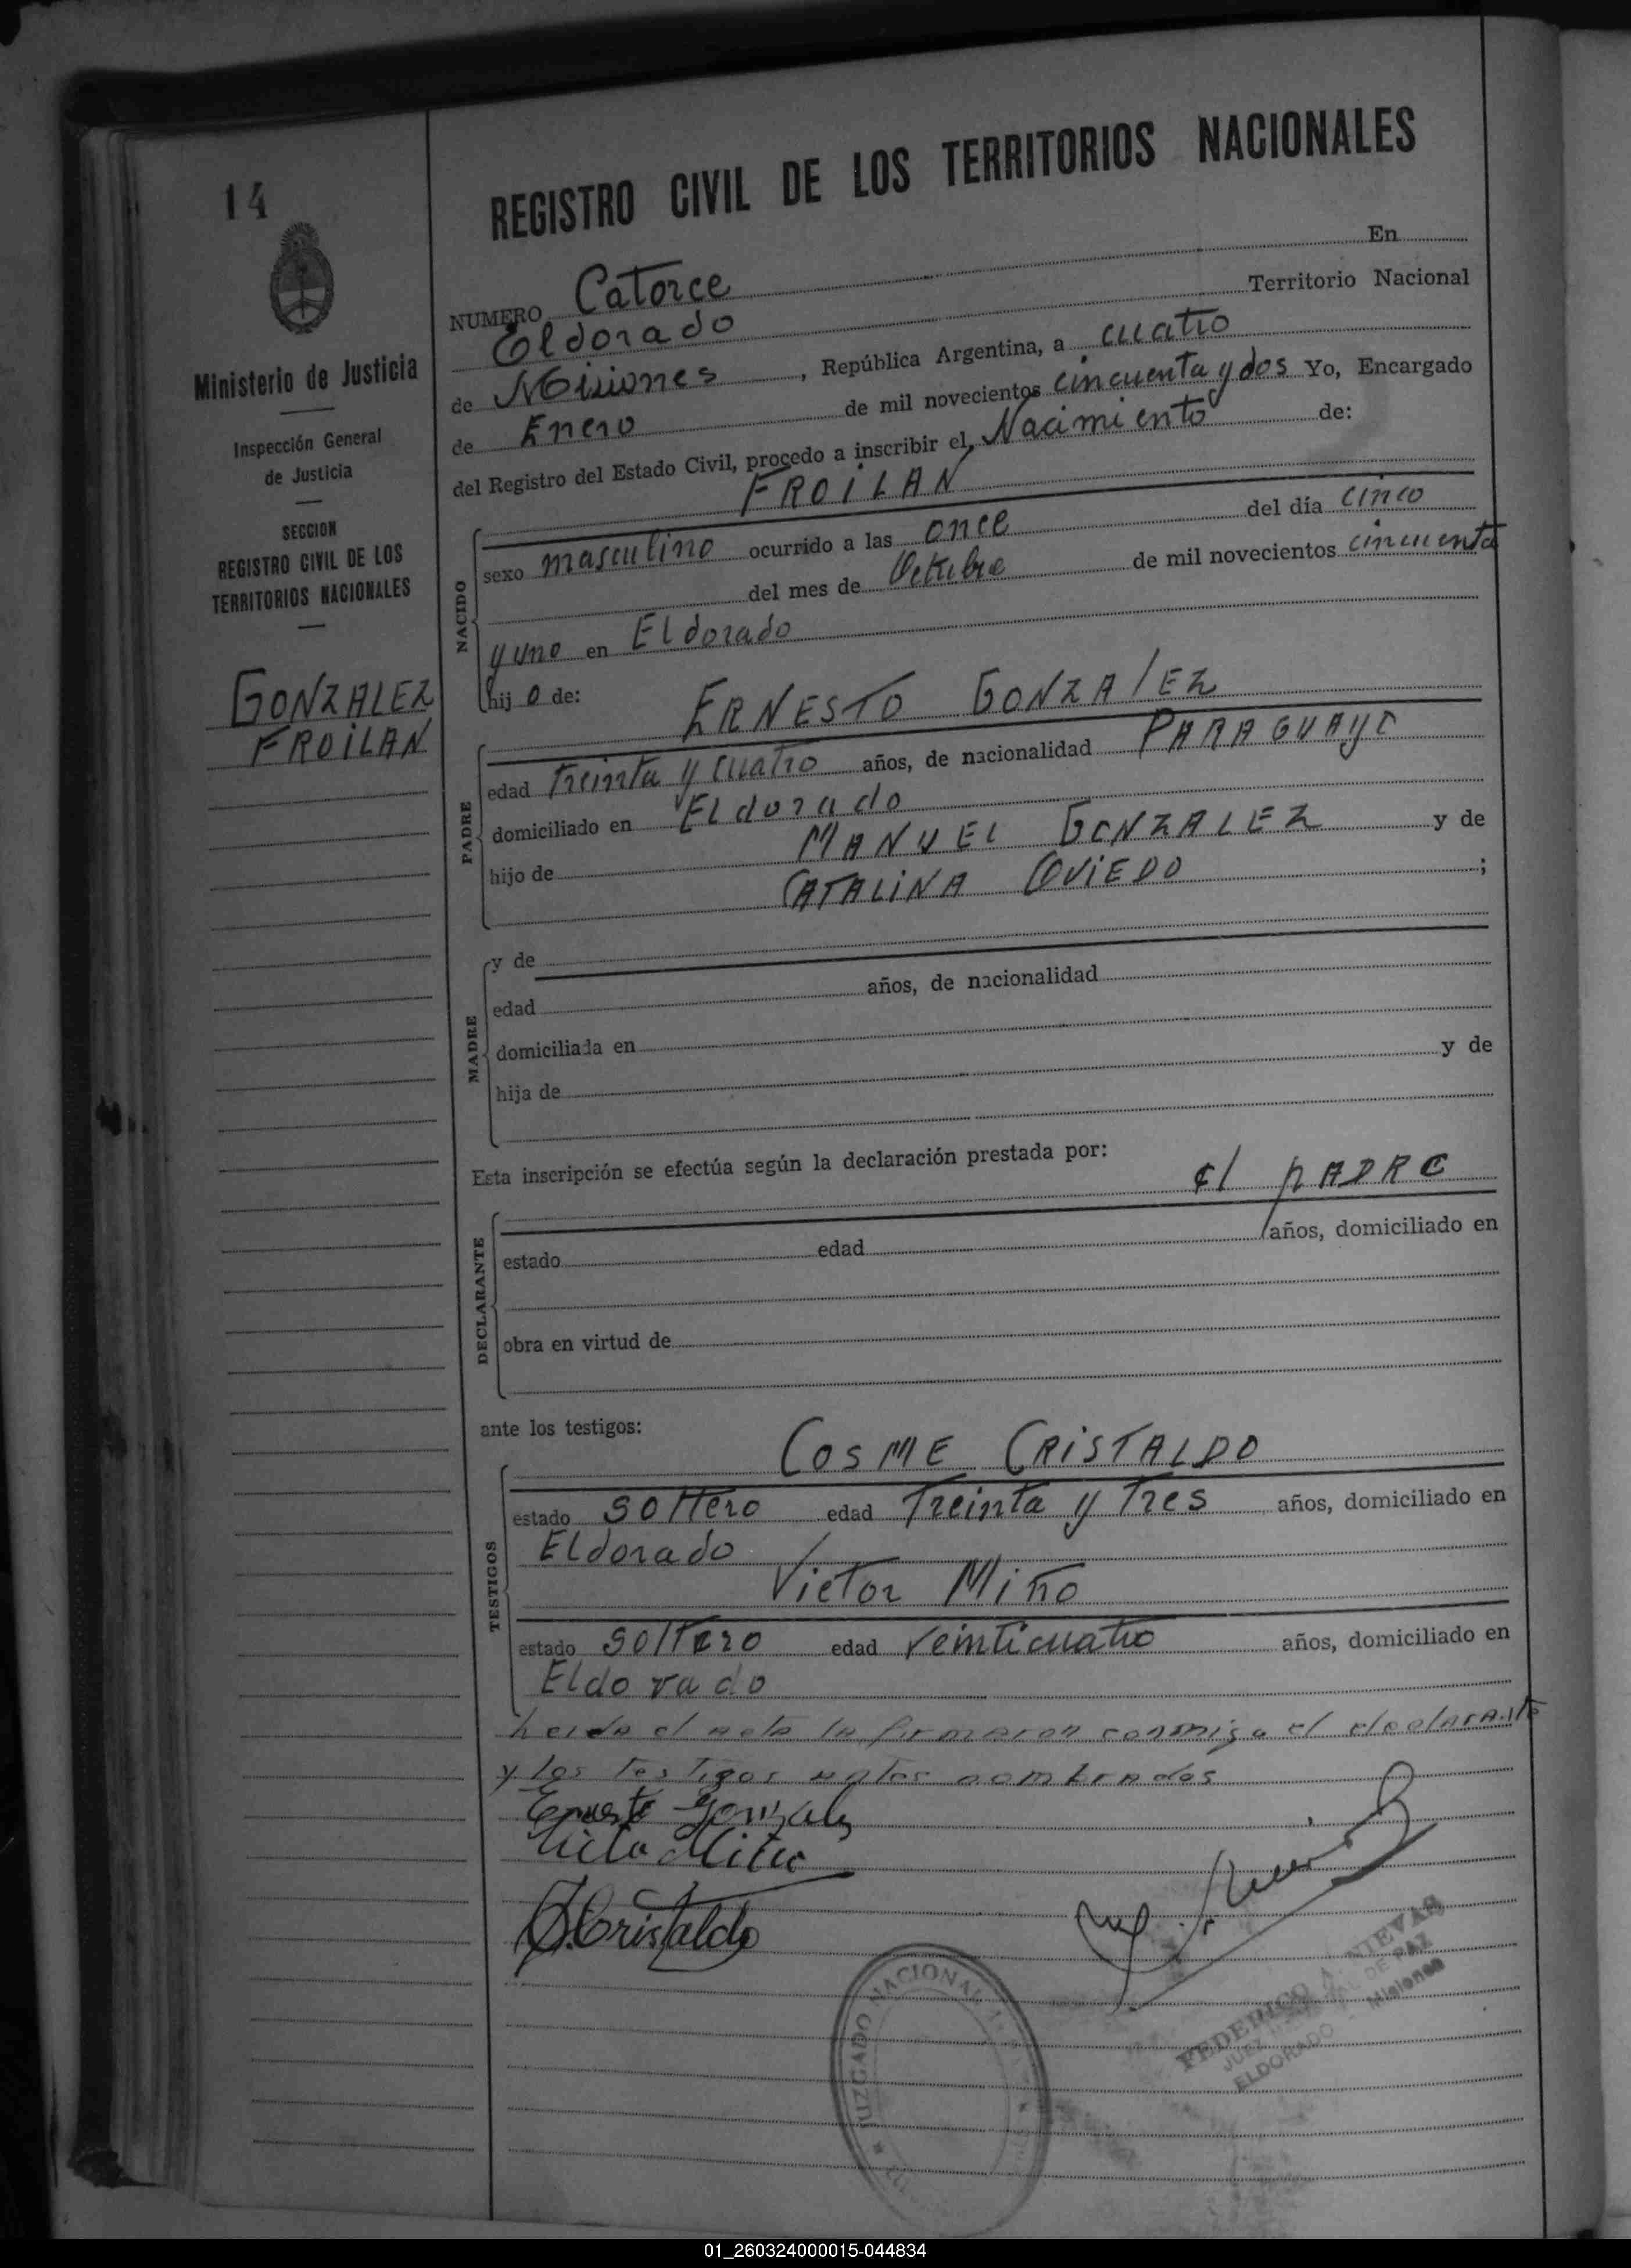 14
Ministerio de Justicia
Inspección General
de Justicia
SECCION
REGISTRO CIVIL DE LOS
TERRITORIOS NACIONALES
GONZALEZ
FROILAN
REGISTRO CIVIL DE LOS TERRITORIOS NACIONALES
NUMERO Catorce En
Eldorado Territorio Nacional
de Misiones, República Argentina, a cuatro
de Enero de mil novecientos cincuenta y dos Yo, Encargado
del Registro del Estado Civil, procedo a inscribir el Nacimiento de:
FROILAN
NACIDO
sexo masculino ocurrido a las once del día cinco
del mes de Octubre de mil novecientos cincuenta
y uno en Eldorado
hij o de:
ERNESTO GONZALEZ
PADRE
edad Treinta y cuatro años, de nacionalidad PARAGUAYO
domiciliado en Eldorado
hijo de MANUEL GONZALEZ y de
CATALINA OVIEDO ;
MADRE
y de
edad años, de nacionalidad
domiciliada en
hija de y de
Esta inscripción se efectúa según la declaración prestada por:
el PADRE
DECLARANTE
estado edad años, domiciliado en
obra en virtud de
ante los testigos:
COSME CRISTALDO
TESTIGOS
estado soltero edad Treinta y Tres años, domiciliado en
Eldorado
Victor Miño
estado soltero edad veinticuatro años, domiciliado en
Eldorado
Leida el acta la firmaron conmigo el declarante
y los testigos antes nombrados
Ernesto Gonzalez
Cristaldo
JUZGADO NACIONAL
FEDERICO A. NIEVAS
JUEZ DE PAZ
ELDORADO Misiones
01_260324000015-044834